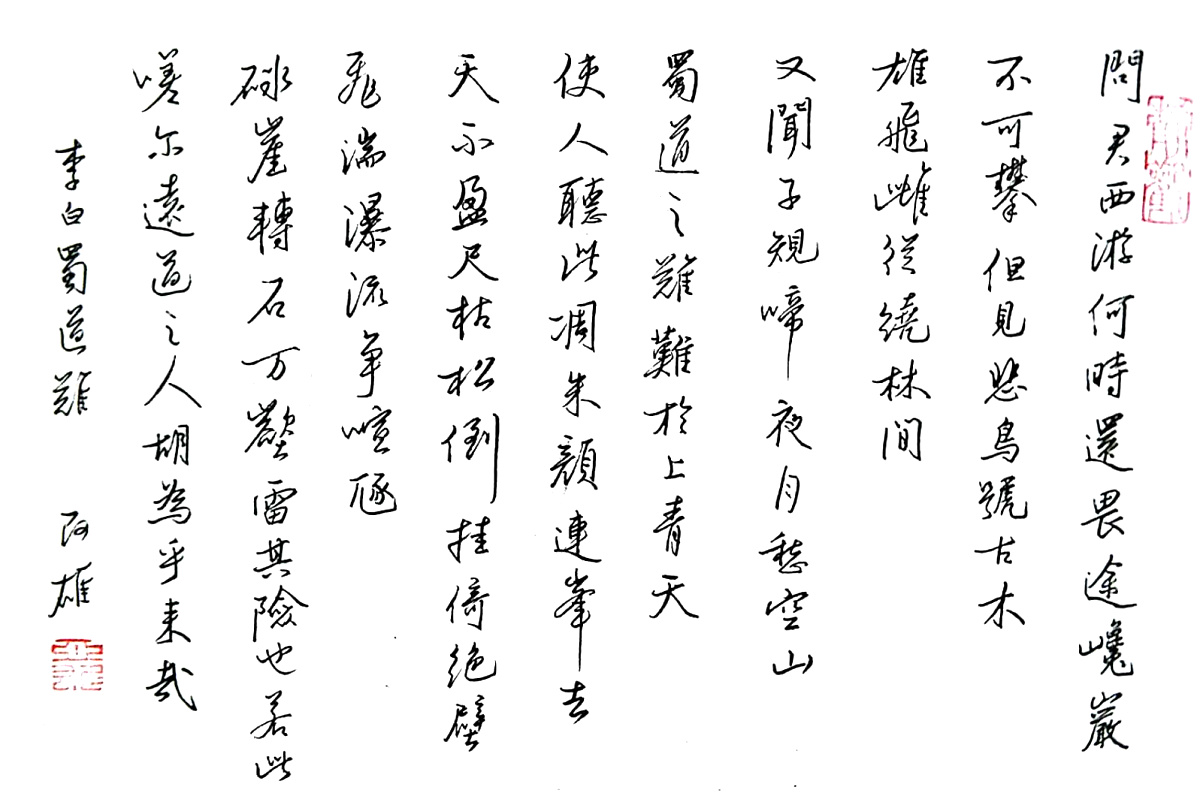 問君西游何時還畏途巉巖
不可攀但見悲鳥號古木
雄飛雌從繞林間
又聞子規啼夜月愁空山
蜀道之難難於上青天
使人聽此凋朱顏連峯去
天不盈尺枯松倒挂倚絶壁
飛湍瀑流争喧豗
砯崖轉石万壑雷其險也若此
嗟尔遠道之人胡為乎来哉
李白蜀道難 阿雄